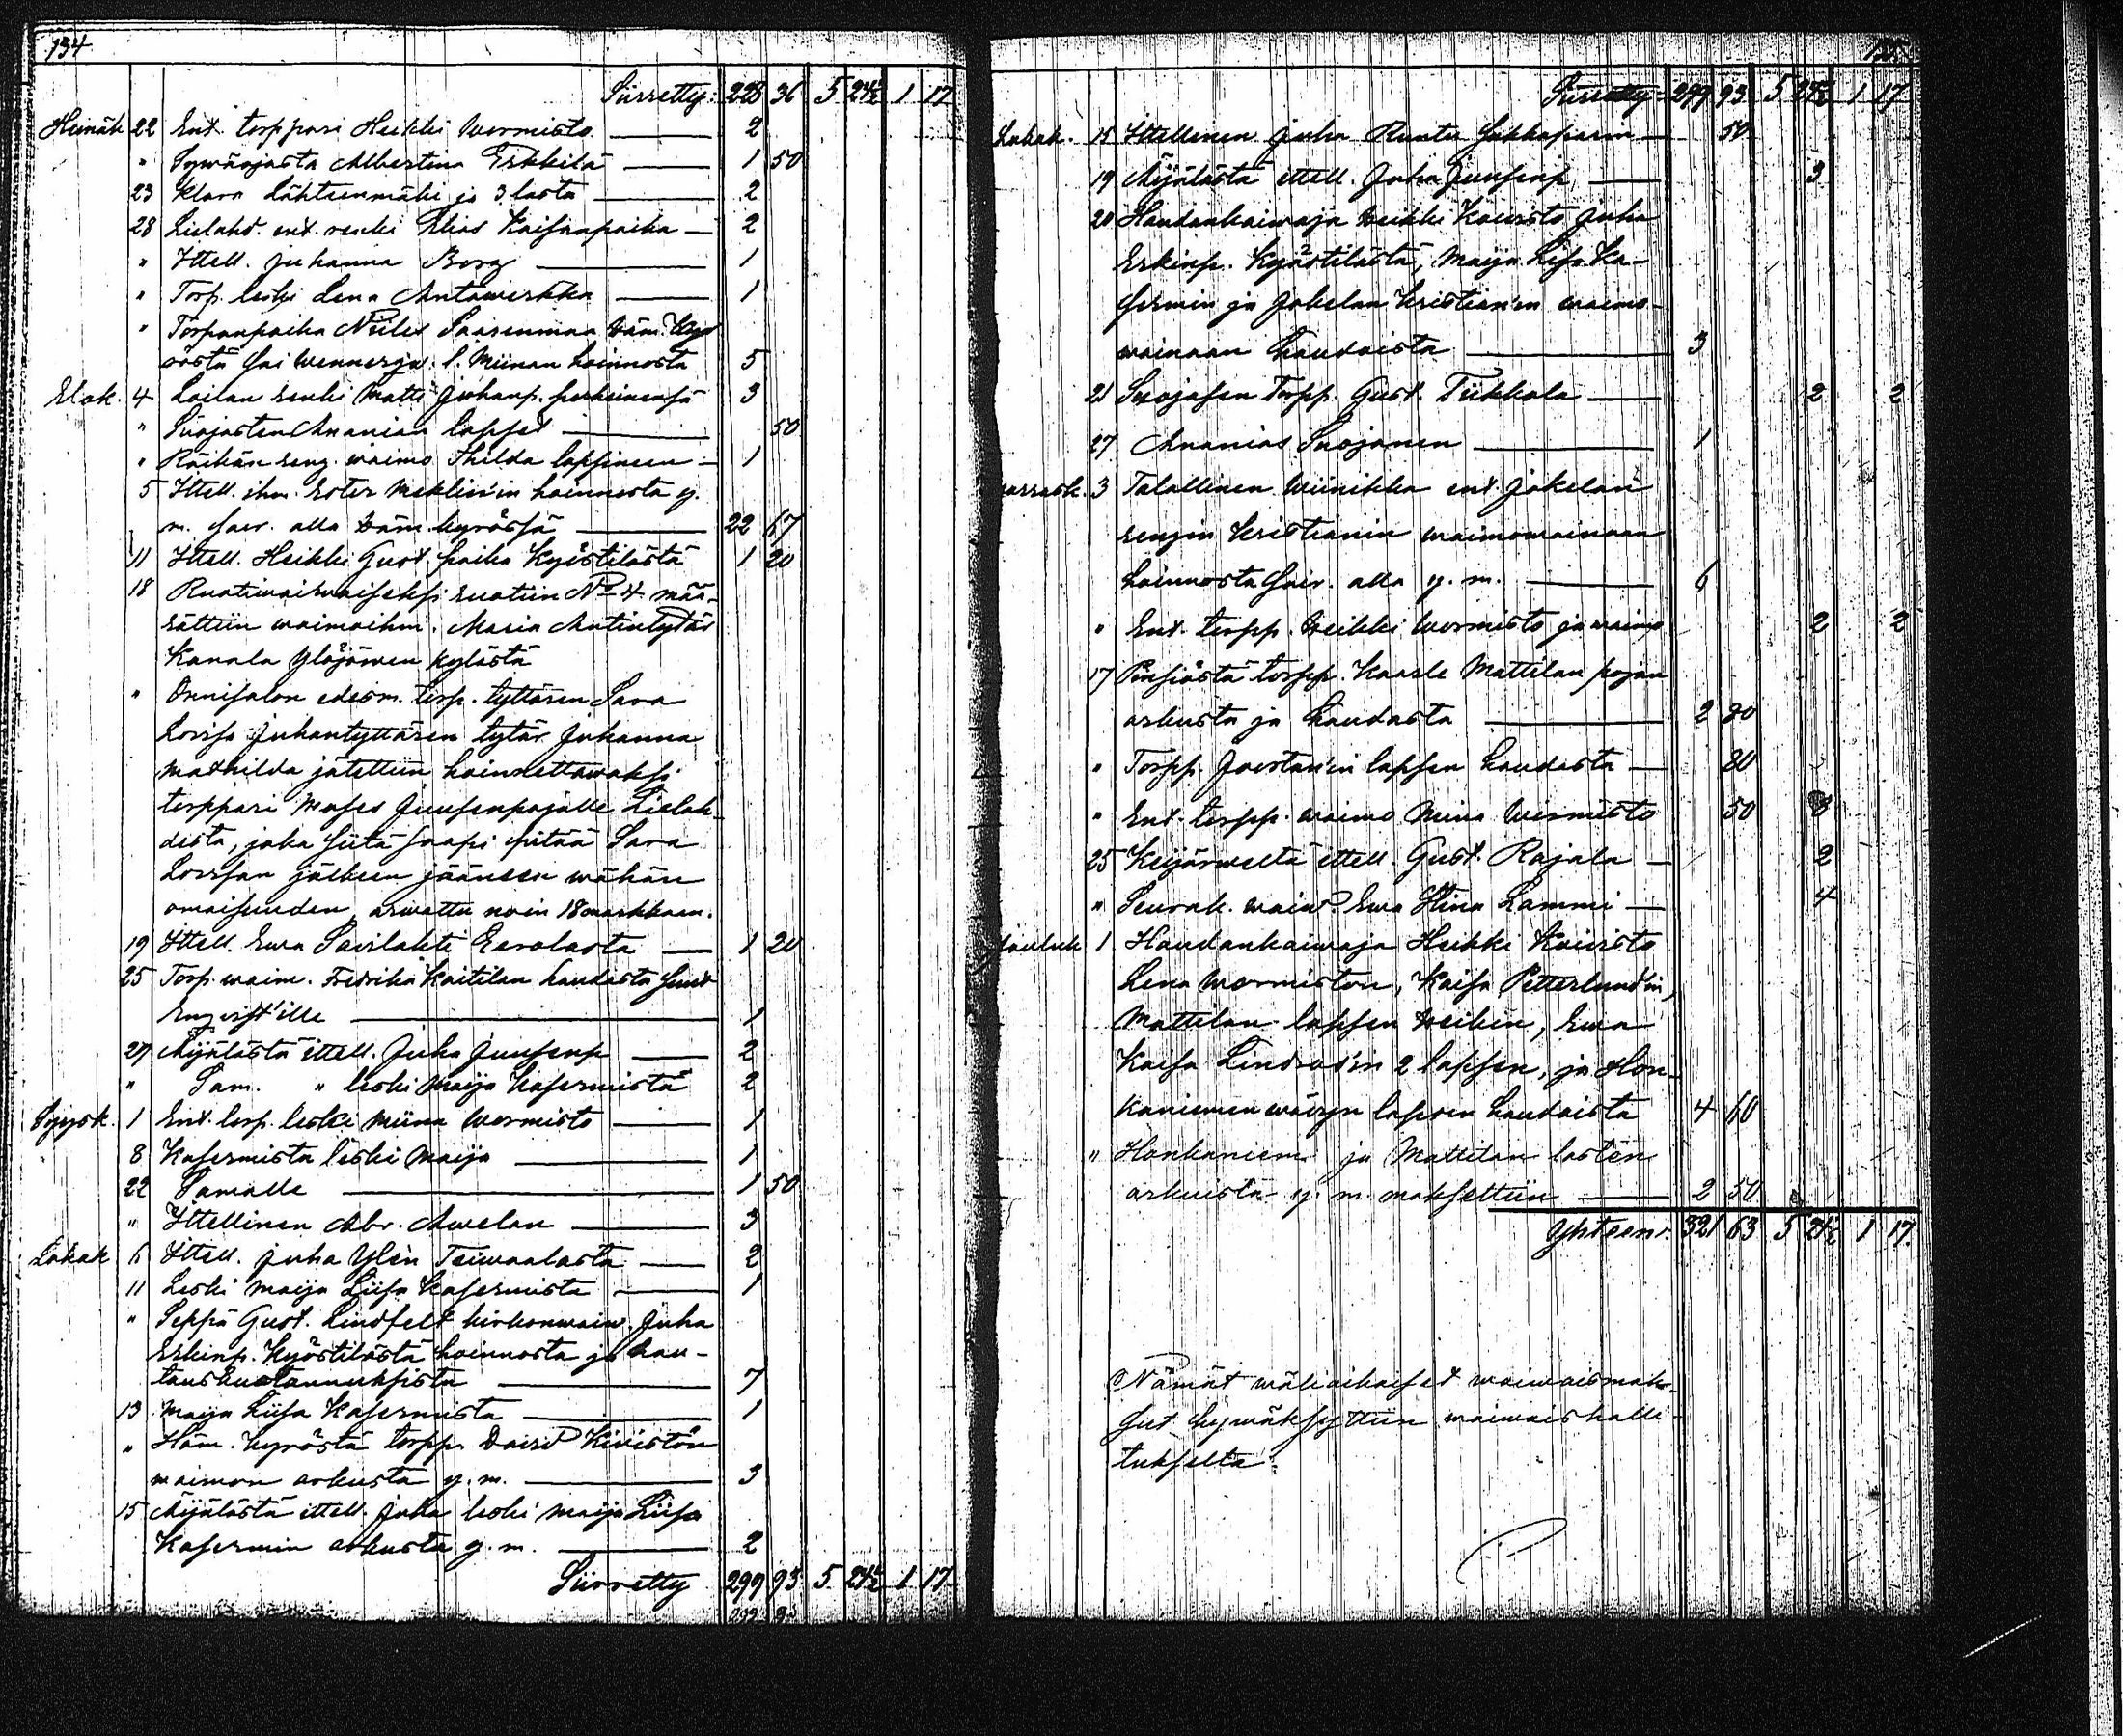 134
Siirretty: 228 36 5 24½ 1 17
Heinäk 22 Ent. torppari Heikki Wormisto 2
" Sywäojasta Albertina Erkkilä 1 50
23 Klara Lähteenmäki ja 3 lasta 2
28 Lielaht. ent. renki Elias Kaisanpoika 2
" Ittell. Juhanna Borg 1
" Torp. leski Lena Antawerkka 1
" Torpanpoika Niiles Saarenmaa Häm. Kyr
östä sai Wennerqw. l. Miinan hoinnosta 5
Elok. 4 Loilan renki Matti Juhanp. perheinensä 3
" Suojasten Ananian lapset 50
" Räikän reng. waimo Thilda lapsineen 1
5 Ittell. ihm. Ester Meklin'in hoinnosta y.
m. sair. alla Häm. kyrössä 22 67
11 Ittell. Heikki Gust. poika Kyöstilästä 1 20
18 Ruotiwaiwaiseksi ruotiin No 4 mää-
rättiin waimoihm. Maria Antintytär
Kanala Ylöjärwen kylästä
" Onnisalon edesm. torp. tyttären Sara
Lovisa Juhantyttären tytär Juhanna
Mathilda jätettiin hoinnettawaksi
torppari Moses Juusenpojalle Lielah-
desta, joka siitä saapi pitää Sara
Lovisan jälkeen jääneen wähän
omaisuuden, arwattu noin 18 markkaan.
19 Ittell. Ewa Savilahti Eerolasta 1 20
25 Torp. waim. Fredrika Kaitilan haudasta Gust
Engvist'ille 1
29 Äijälästä ittell. Juha Juusenp 2
" Sam. " leski Maija Kasermista 2
Syysk. 1 Ent. torp. leski Miina Wormisto 1
8 Kasermista leski Maija 1
22 Samalle 1 50
" Ittellinen Abr. Awelan 3
Lokak 6 Ittell. Juha Ylén Teiwaalasta 2
11 Leski Maija Liisa Kasermista 1
" Seppä Gust. Lindfelt kirkonwaiw. Juha
Erkinp. Kyöstilästä hoinnosta ja hau-
tauskustannuksista 7
13 Maija Liisa Kasermista 1
" Häm. kyröstä torpp. David Kiwistön
waimon arkusta y. m. 3
15 Äijälästä ittell. Juha leski Maija Liisa
Kasermin arkusta y. m. 2
Siirretty 299 93 5 24½ 1 17
135.
Siirretty 299 93 5 24½ 1 17
Lokak. 15 Ittellinen Juha Ruutu 50
19 Äijälästä ittell. Juha Juusenp 3
20 Haudankaiwaja Heikki Koiwisto Juha
Erkinp. Kyöstilästä, Maija Liisa Ka-
sermin ja Jokelan Kristian'in waimo-
wainaan haudoista 3
21 Suojasen torpp. Gust. Tiikkala 2 2
27 Ananias Suojanen 1
Marrask. 3 Talollinen Wiinikka ent. Jokelan
rengin Kristianin waimowainaan
hoinnosta sair. alla y. m. 6
" Ent. torpp. Heikki Wormisto ja waimo 2 2
17 Pinsiöstä torpp. Kaarle Mattilan pojan
arkusta ja haudasta 2 80
" Torpp. Joostan'in lapsen haudasta 80
" Ent. torpp. waimo Miina Wormisto 50 3
25 Keijärweltä ittell. Gust. Rajala 2
" Seurak. waiw. Ewa Stina Lammi 4
Jouluk 1 Haudankaiwaja Heikki Koiwisto
Lena Wormiston, Kaisa Petterlund'in,
Mattilan lapsen Heikin, Ewa
Kaisa Lindroos'in 2 lapsen, ja Hon-
kaniemen wäwyn lapsen haudoista 4 60
" Honkaniem. ja Mattilan lasten
arkuista y. m. maksettiin 2 50
Yhteens. 321 63 5 24½ 1 17.
Nämät wäliaikaiset waiwaismak-
sut hywäksyttiin waiwaishalli-
tukselta.